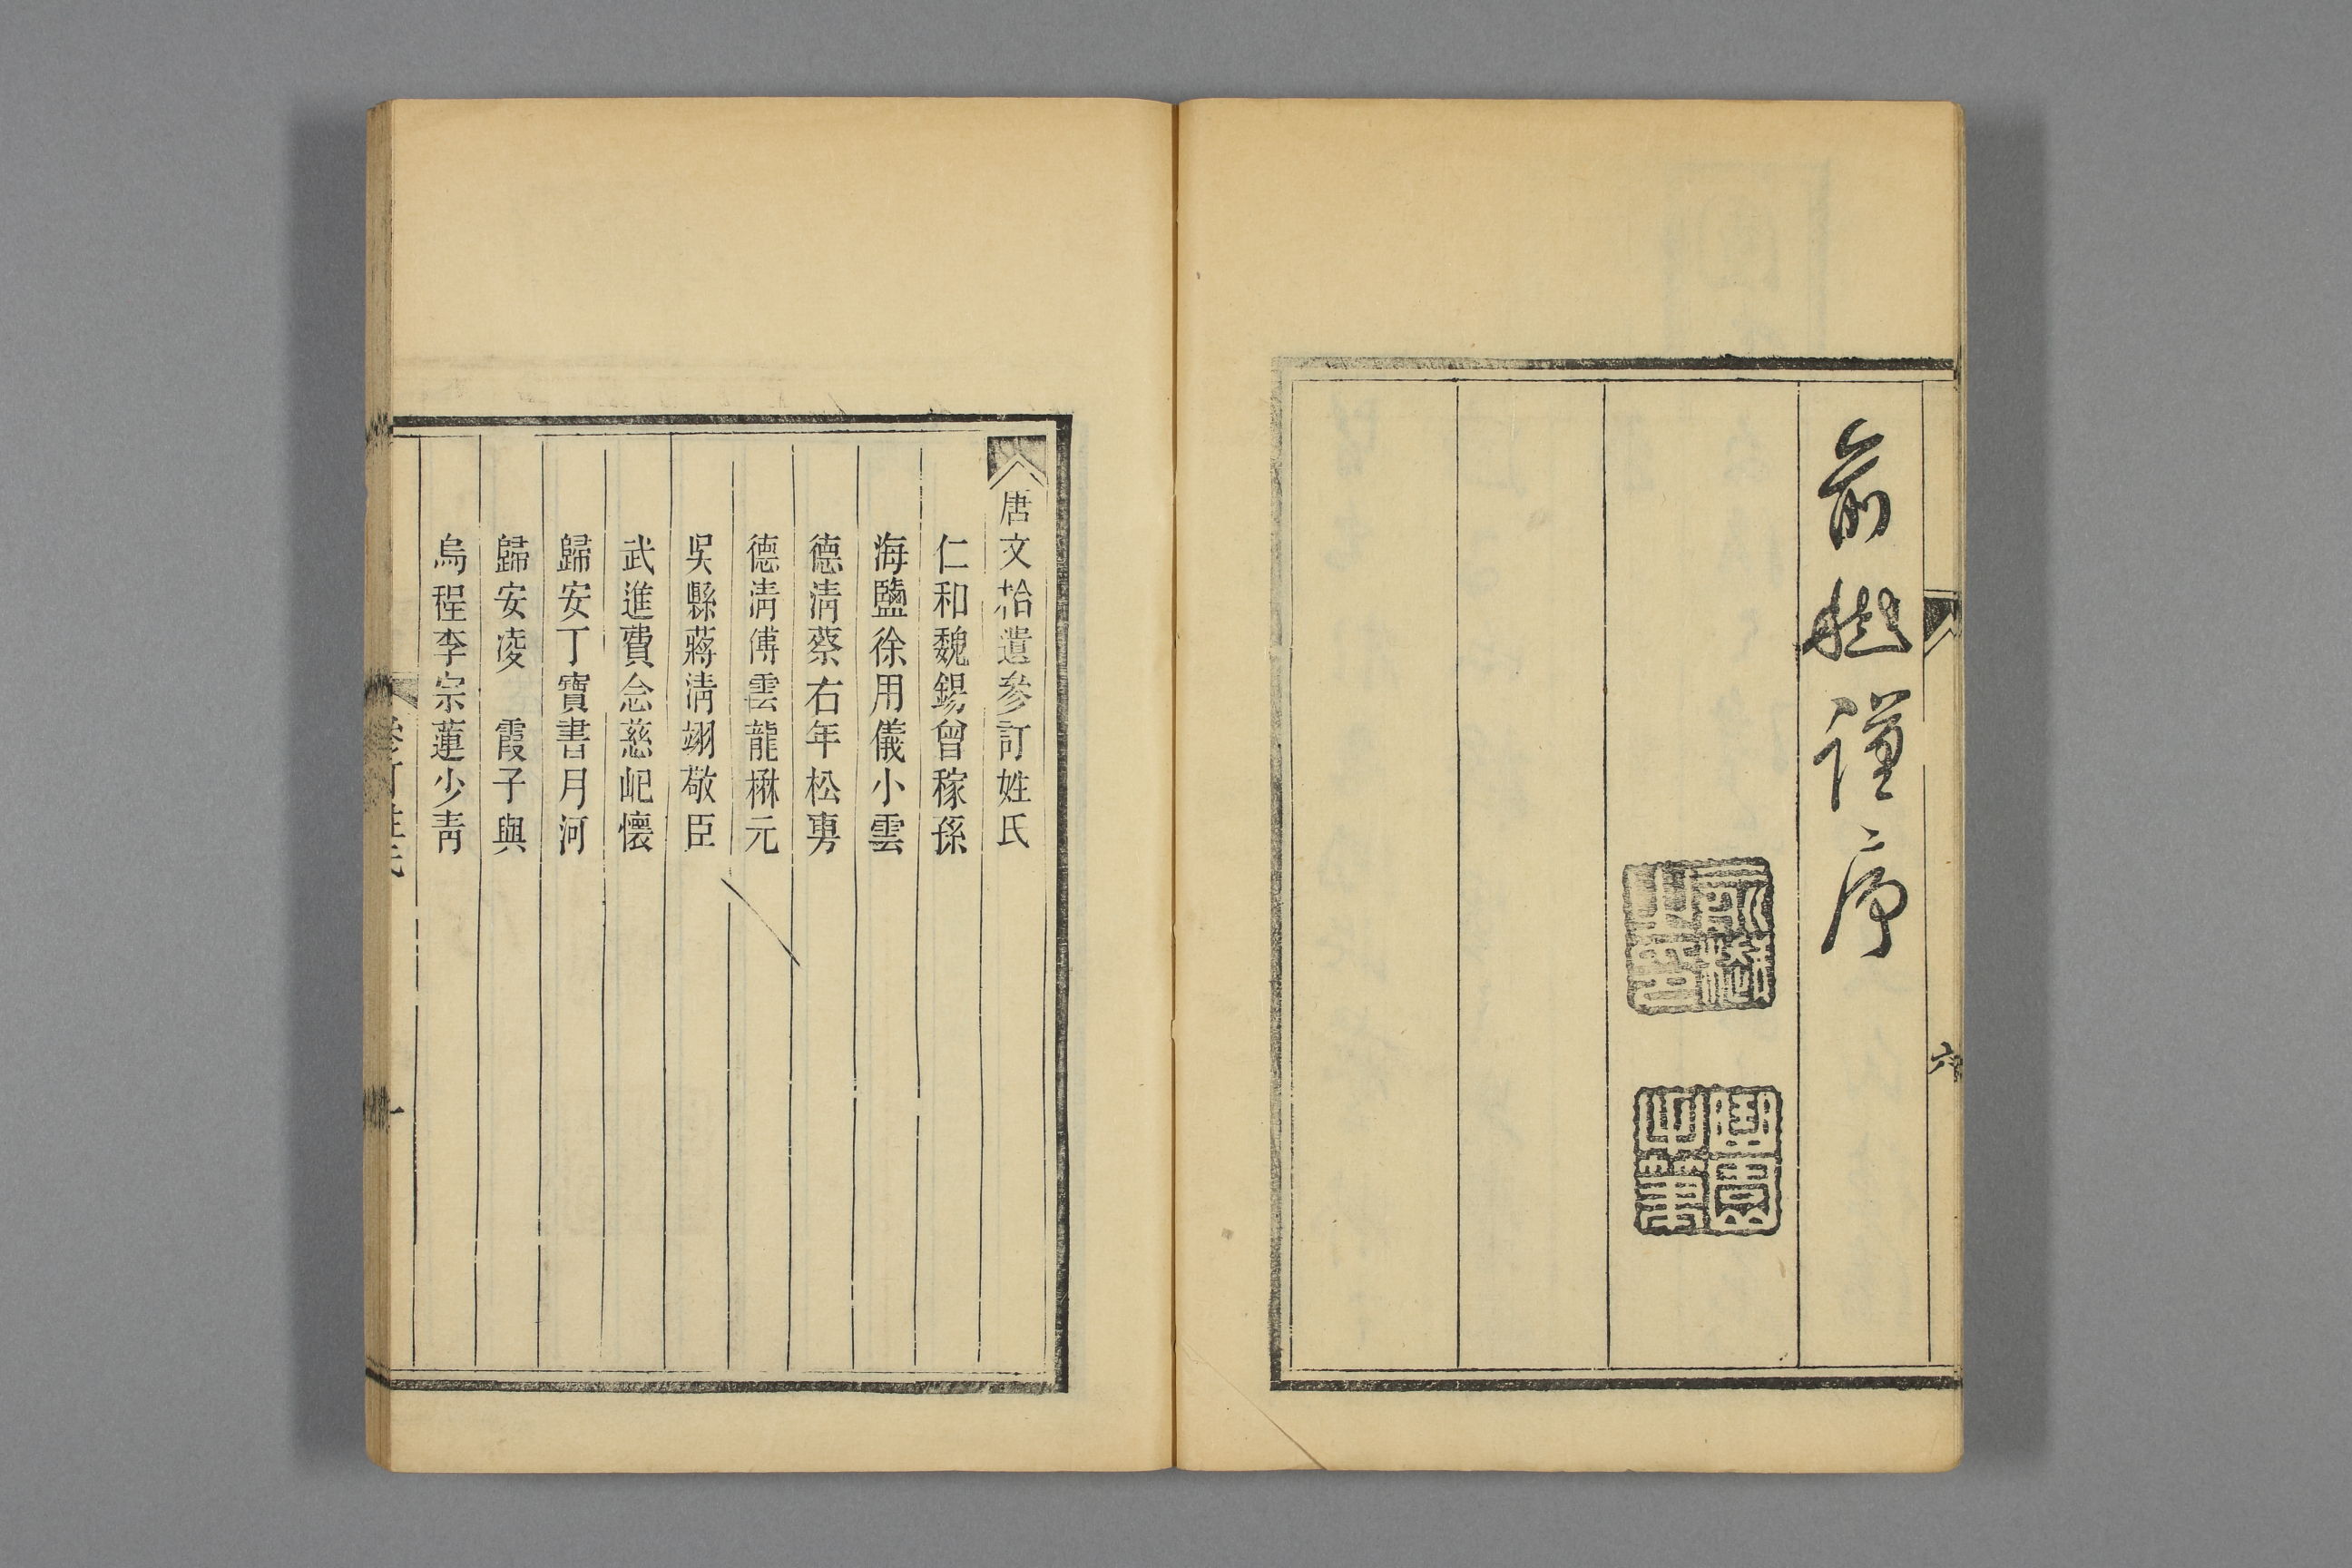 俞樾謹序
六
唐文拾遺參訂姓氏
仁和魏錫曾稼孫
海鹽徐用儀小雲
德清蔡右年松旉
德清傅雲龍楙元
吳縣蔣清翊敬臣
武進費念慈屺懷
歸安丁寶書月河
歸安凌　霞子與
烏程李宗蓮少青
參訂姓氏
一